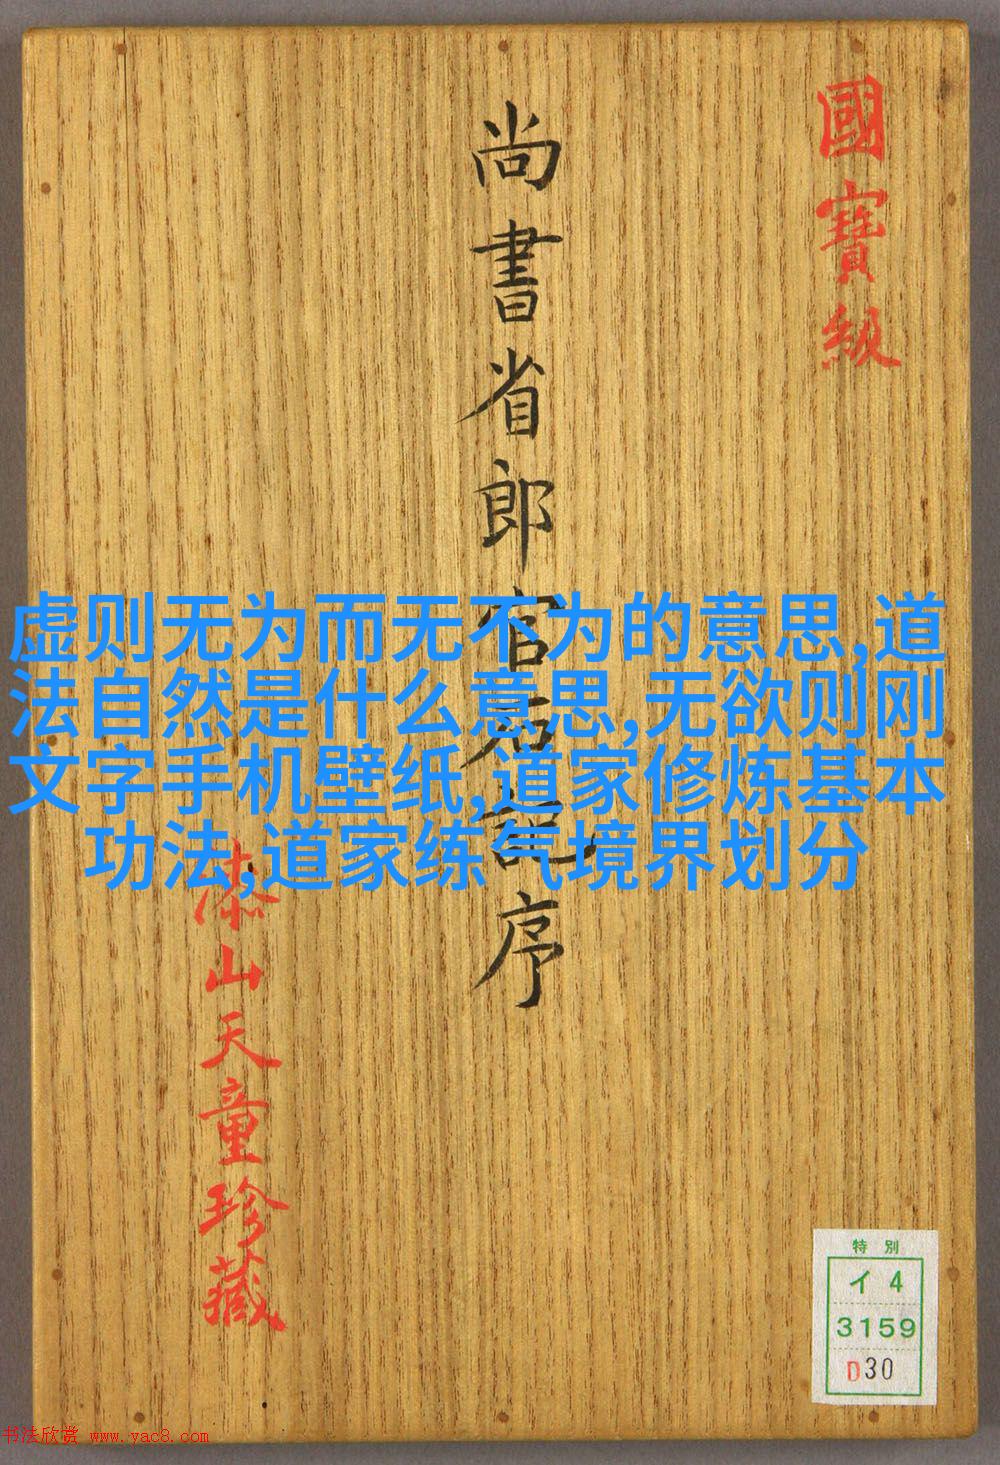 國寶級
尚書省郎官石記序
泰山天童珍藏
虚则无为而无不为的意思,道
法自然是什么意思,无欲则刚
文字手机壁纸,道家修炼基本
功法,道家练气境界划分
特別
イ4
3159
D30
书法欣赏 www.yac8.com